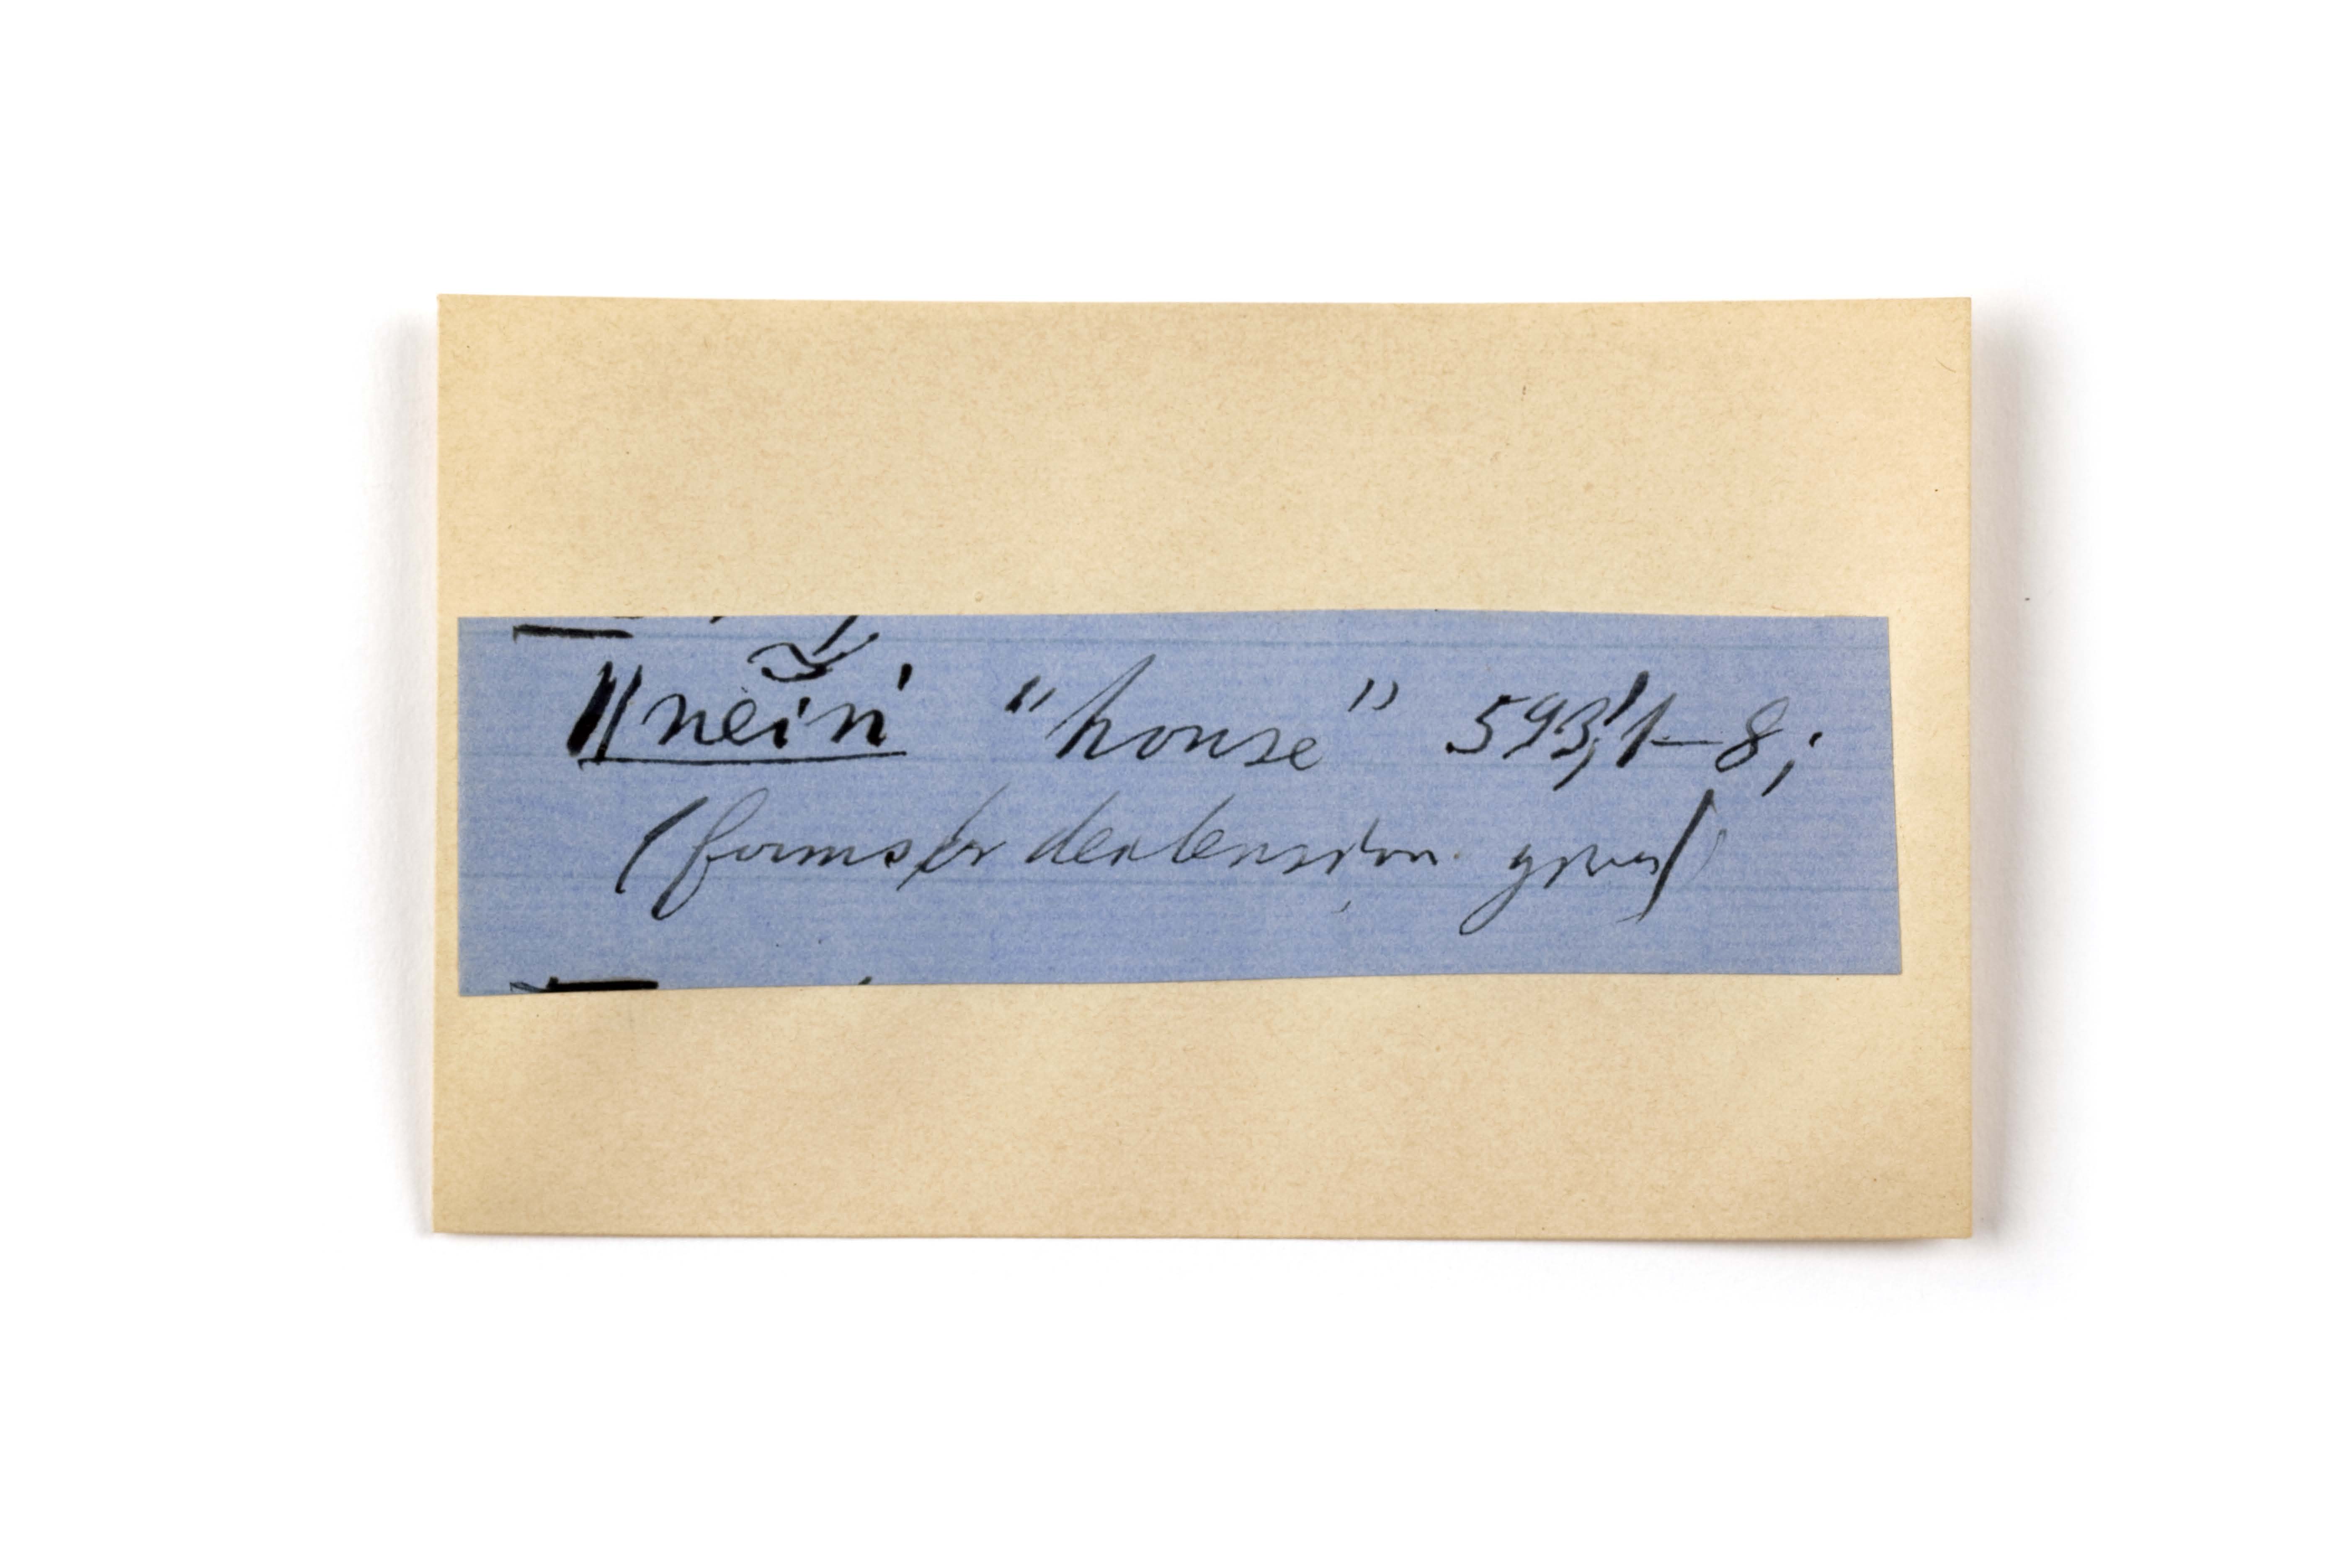 neiń "house" 593,1–8;
(forms declension given)